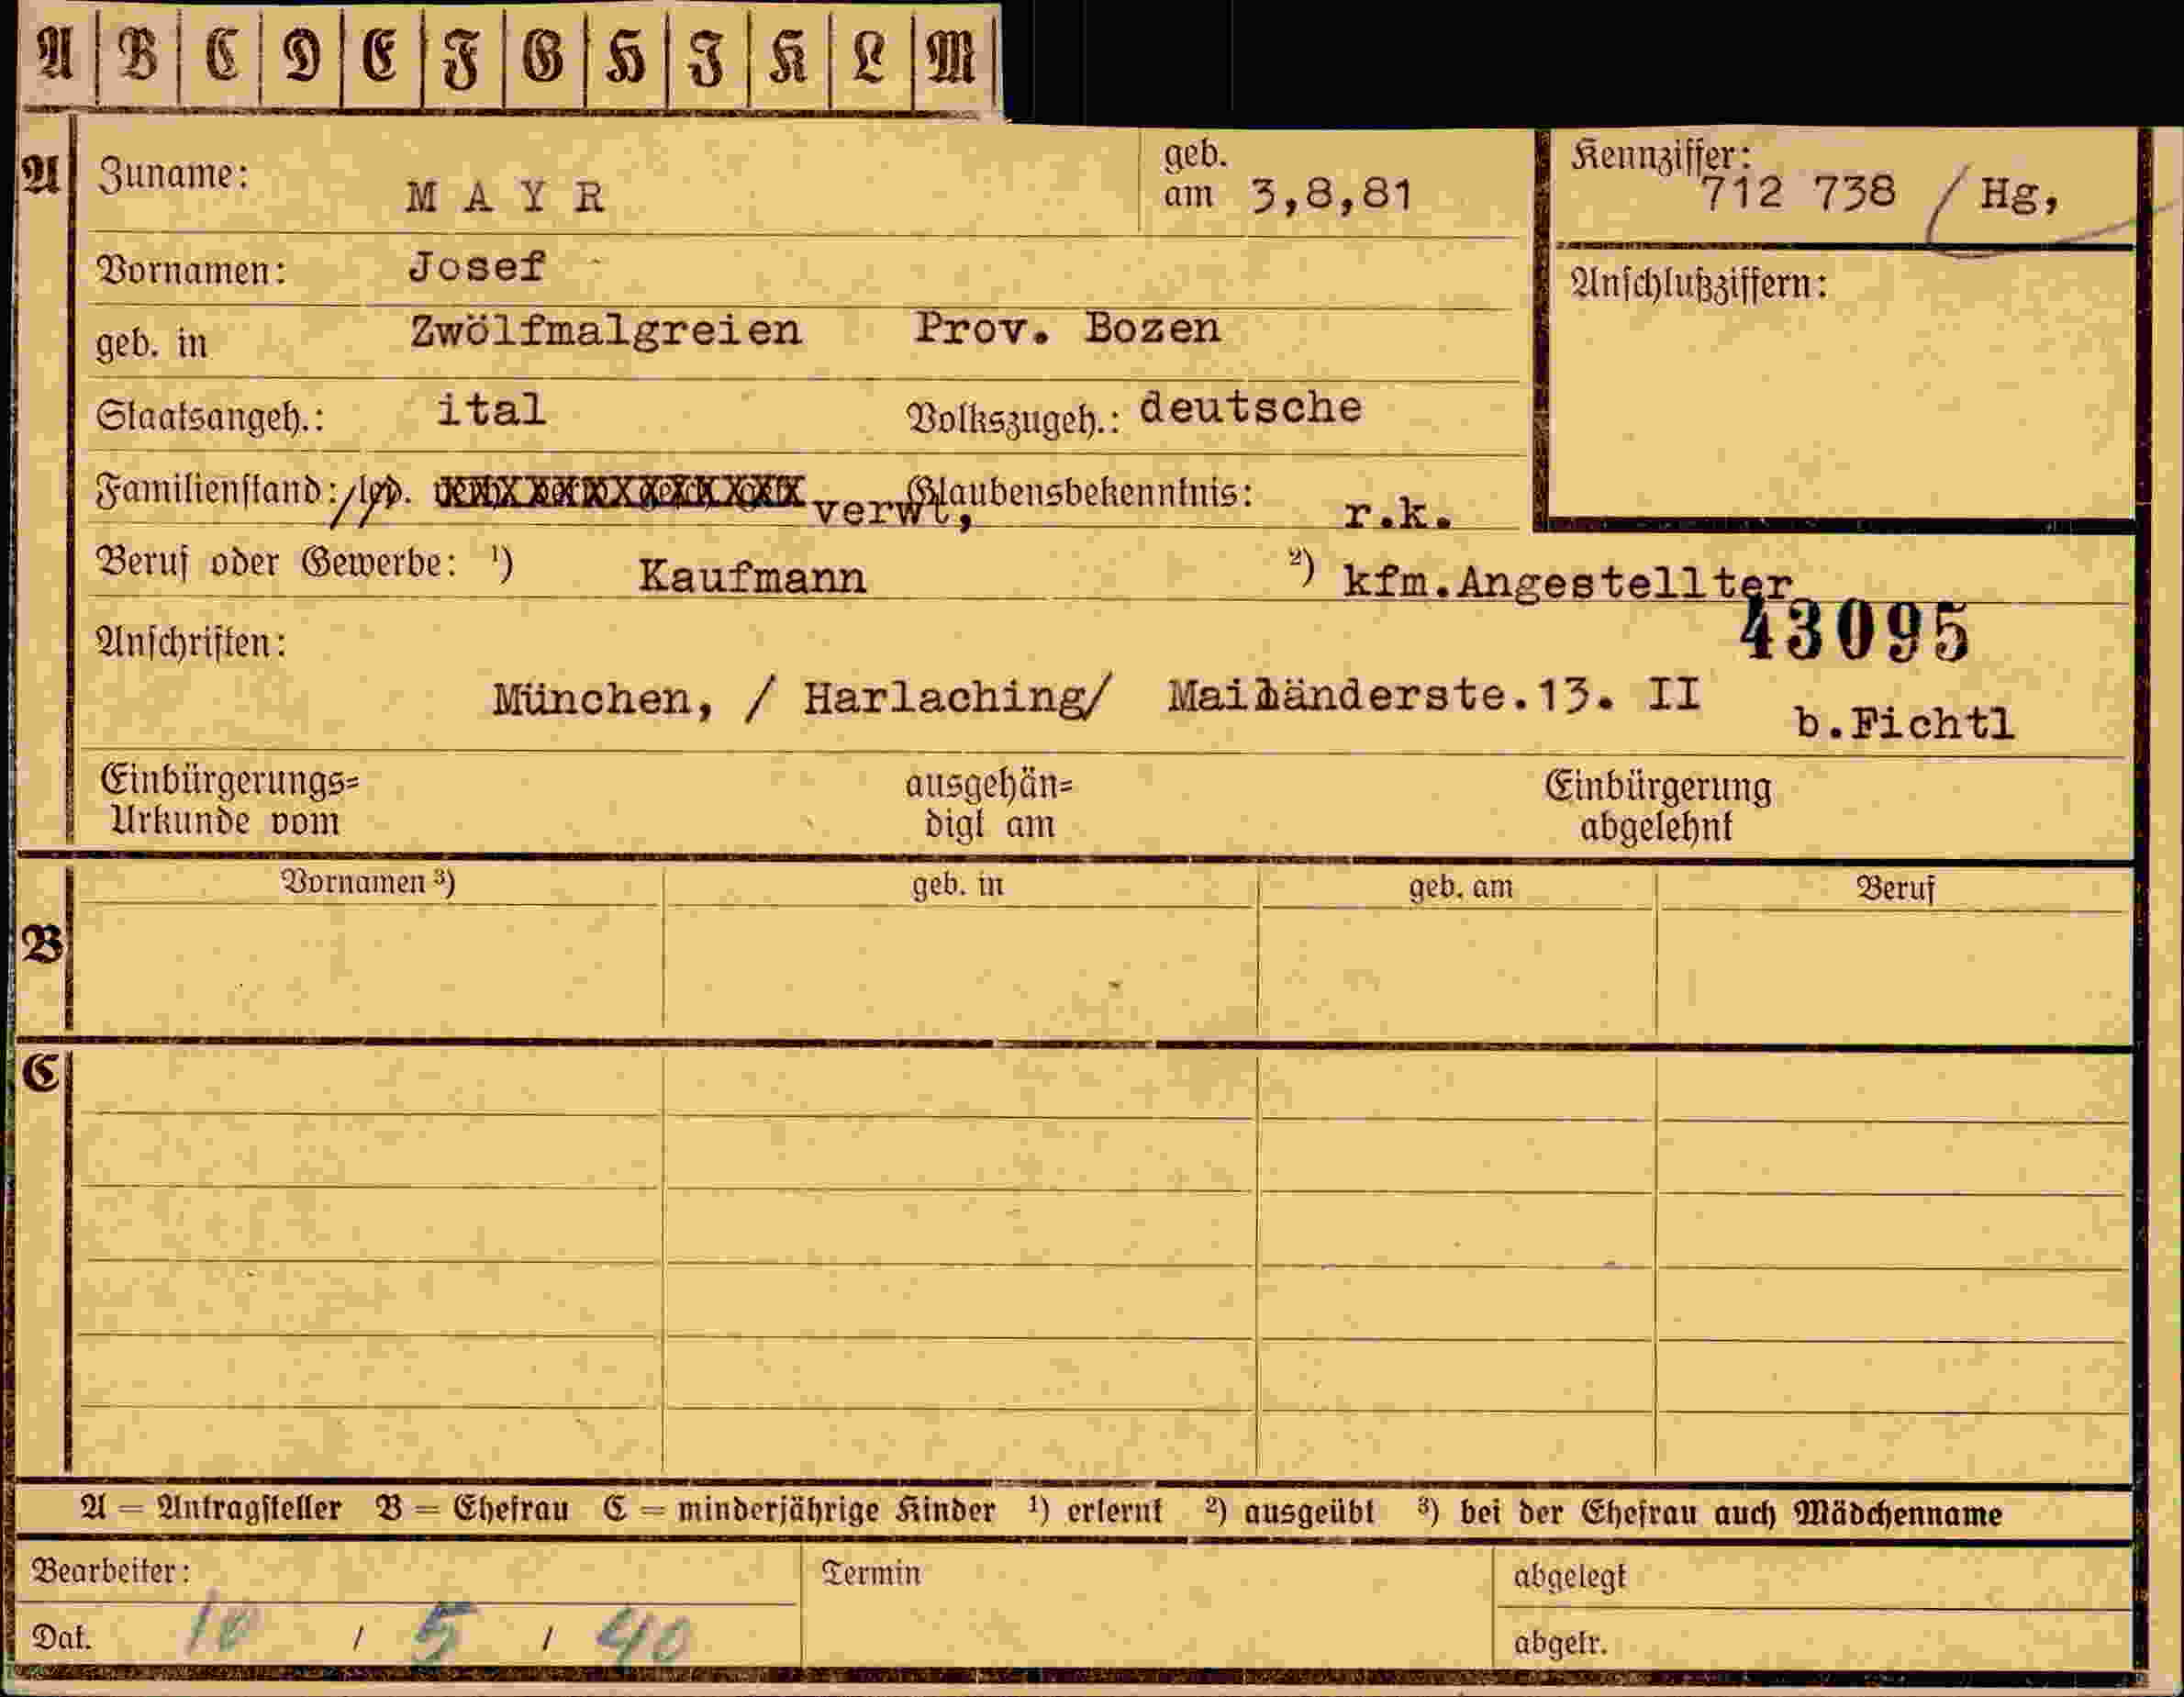 A B C D E F G H I K L M
A Zuname: MAYR geb. am 3,8,81 Kennziffer: 712 738 / Hg,
Vornamen: Josef Anschlußziffern:
geb. in Zwölfmalgreien Prov. Bozen
Staatsangeh.: ital Volkszugeh.: deutsche
Familienstand: /led. verwt, Glaubensbekenntnis: r.k.
Beruf oder Gewerbe: ¹) Kaufmann ²) kfm.Angestellter
43095
Anschriften:
München, / Harlaching/ Mailänderste.13. II b.Fichtl
Einbürgerungs= ausgehän= Einbürgerung
Urkunde vom digt am abgelehnt
B Vornamen ³) geb. in geb. am Beruf
C
A = Antragsteller B = Ehefrau C = minderjährige Kinder ¹) erlernt ²) ausgeübt ³) bei der Ehefrau auch Mädchenname
Bearbeiter: Termin abgelegt
Dat. 10 / 5 / 40 abgetr.